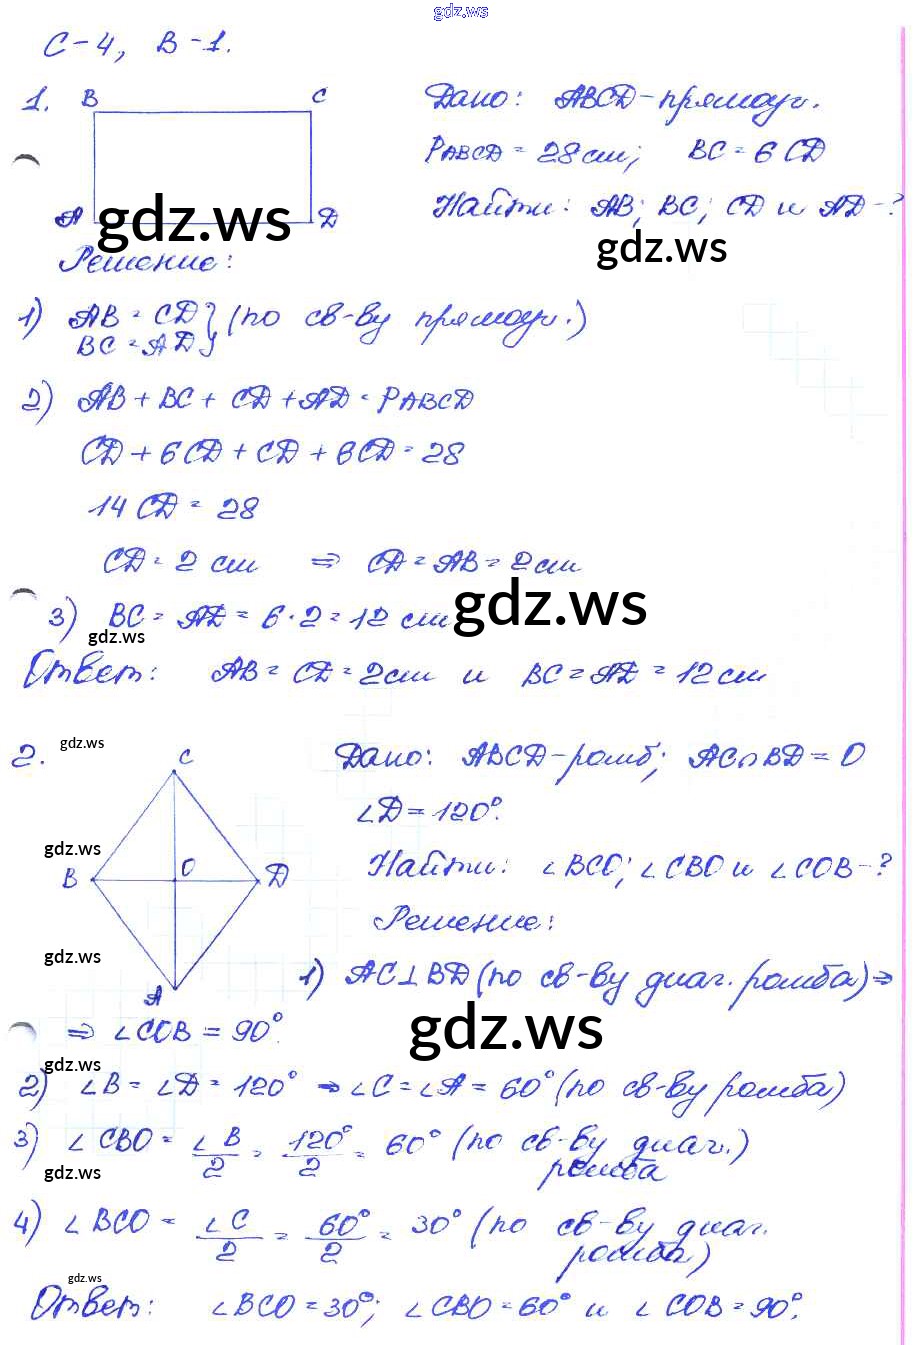 gdz.ws
С-4, В-1.
1. B C
A D
Дано: ABCD-прямоуг.
PABCD = 28 см; BC = 6 CD
Найти: AB; BC; CD и AD-?
gdz.ws
gdz.ws
Решение:
1) AB = CD } (по св-ву прямоуг.)
BC = AD
2) AB + BC + CD + AD = PABCD
CD + 6CD + CD + 6CD = 28
14 CD = 28
CD = 2 см ⇒ CD = AB = 2 см
3) BC = AD = 6 · 2 = 12 см
gdz.ws
gdz.ws
Ответ: AB = CD = 2 см и BC = AD = 12 см
2. gdz.ws
C
B O D
A
gdz.ws
gdz.ws
Дано: ABCD-ромб; AC∩BD = O
∠D = 120°.
Найти: ∠BCO; ∠CBO и ∠COB-?
Решение:
1) AC⊥BD (по св-ву диаг. ромба) ⇒
⇒ ∠COB = 90°.
gdz.ws
gdz.ws
2) ∠B = ∠D = 120° ⇒ ∠C = ∠A = 60° (по св-ву ромба)
3) ∠CBO = ∠B/2 = 120°/2 = 60° (по св-ву диаг.)
ромба
gdz.ws
4) ∠BCO = ∠C/2 = 60°/2 = 30° (по св-ву диаг.
ромба)
gdz.ws
Ответ: ∠BCO = 30°; ∠CBO = 60° и ∠COB = 90°.